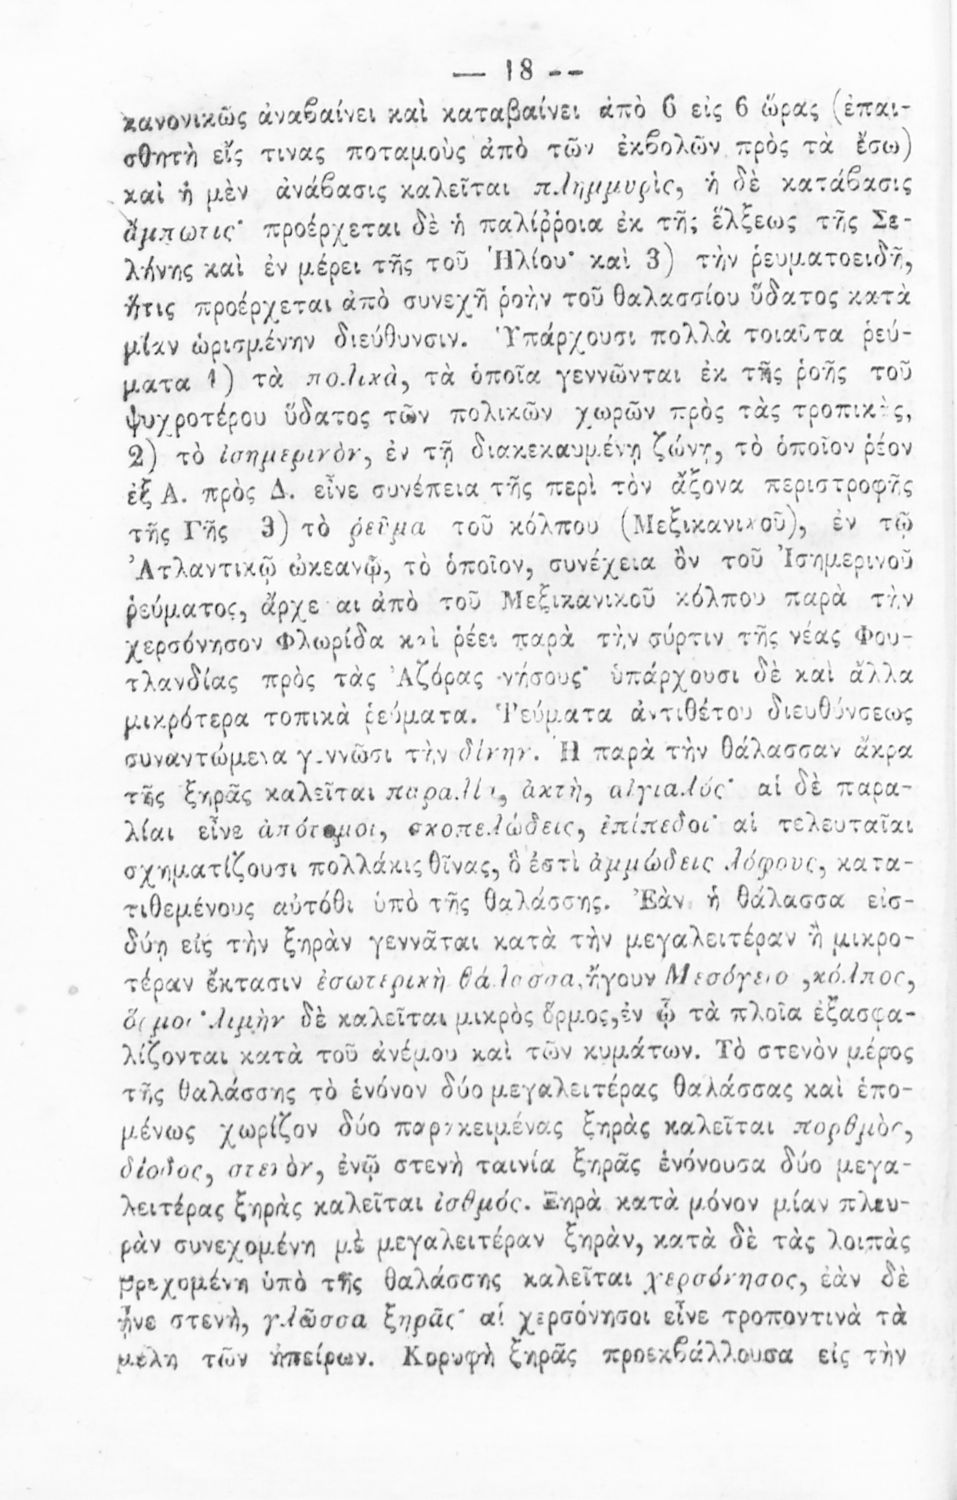 — 18 --
κανονικῶς ἀναβαίνει καὶ καταβαίνει ἀπὸ 6 εἰς 6 ὥρας (ἐπαι-
σθητὴ εἴς τινας ποταμοὺς ἀπὸ τῶν ἐκβολῶν πρὸς τὰ ἔσω)
καὶ ἡ μὲν ἀνάβασις καλεῖται πλημμυρὶς, ἡ δὲ κατάβασις
ἄμπωτις· προέρχεται δὲ ἡ παλίῤῥοια ἐκ τῆς ἕλξεως τῆς Σε-
λήνης καὶ ἐν μέρει τῆς τοῦ Ἡλίου· καὶ 3) τὴν ῥευματοειδῆ,
ἥτις προέρχεται ἀπὸ συνεχῆ ῥοὴν τοῦ θαλασσίου ὕδατος κατὰ
μίαν ὡρισμένην διεύθυνσιν. Ὑπάρχουσι πολλὰ τοιαῦτα ῥεύ-
ματα 1) τὰ πολικὰ, τὰ ὁποῖα γεννῶνται ἐκ τῆς ῥοῆς τοῦ
ψυχροτέρου ὕδατος τῶν πολικῶν χωρῶν πρὸς τὰς τροπικὰς,
2) τὸ ἰσημερινὸν, ἐν τῇ διακεκαυμένῃ ζώνῃ, τὸ ὁποῖον ῥέον
ἐξ Α. πρὸς Δ. εἶνε συνέπεια τῆς περὶ τὸν ἄξονα περιστροφῆς
τῆς Γῆς 3) τὸ ῥεῦμα τοῦ κόλπου (Μεξικανικοῦ), ἐν τῷ
Ἀτλαντικῷ ὠκεανῷ, τὸ ὁποῖον, συνέχεια ὂν τοῦ Ἰσημερινοῦ
ῥεύματος, ἄρχε αι ἀπὸ τοῦ Μεξικανικοῦ κόλπου παρὰ τὴν
χερσόνησον Φλωρίδα καὶ ῥέει παρὰ τὴν σύρτιν τῆς νέας Φου-
τλανδίας πρὸς τὰς Ἀζόρας νήσους· ὑπάρχουσι δὲ καὶ ἄλλα
μικρότερα τοπικὰ ῥεύματα. Ῥεύματα ἀντιθέτου διευθύνσεως
συναντώμενα γεννῶσι τὴν δίνην. Ἡ παρὰ τὴν θάλασσαν ἄκρα
τῆς ξηρᾶς καλεῖται παραλία, ἀκτὴ, αἰγιαλός· αἱ δὲ παρα-
λίαι εἶνε ἀπότομοι, σκοπελώδεις, ἐπίπεδοι· αἱ τελευταῖαι
σχηματίζουσι πολλάκις θῖνας, ὅ ἐστὶ ἀμμώδεις λόφους, κατα-
τιθεμένους αὐτόθι ὑπὸ τῆς θαλάσσης. Ἐὰν ἡ θάλασσα εἰσ-
δύῃ εἰς τὴν ξηρὰν γεννᾶται κατὰ τὴν μεγαλειτέραν ἢ μικρο-
τέραν ἔκτασιν ἐσωτερικὴ θάλασσα, ἤγουν Μεσόγειο ,κόλπος,
ὅρμος· λιμὴν δὲ καλεῖται μικρὸς ὅρμος,ἐν ᾧ τὰ πλοῖα ἐξασφα-
λίζονται κατὰ τοῦ ἀνέμου καὶ τῶν κυμάτων. Τὸ στενὸν μέρος
τῆς θαλάσσης τὸ ἑνόνον δύο μεγαλειτέρας θαλάσσας καὶ ἑπο-
μένως χωρίζον δύο παρακειμένας ξηρὰς καλεῖται πορθμὸς,
δίοδος, στενὸν, ἐνῷ στενὴ ταινία ξηρᾶς ἑνόνουσα δύο μεγα-
λειτέρας ξηρὰς καλεῖται ἰσθμός. Ξηρὰ κατὰ μόνον μίαν πλευ-
ρὰν συνεχομένη μὲ μεγαλειτέραν ξηρὰν, κατὰ δὲ τὰς λοιπὰς
βρεχομένη ὑπὸ τῆς θαλάσσης καλεῖται χερσόνησος, ἐὰν δὲ
ἦνε στενὴ, γλῶσσα ξηρᾶς· αἱ χερσόνησοι εἶνε τροποντινὰ τὰ
μέλη τῶν ἠπείρων. Κορυφὴ ξηρᾶς προεκβάλλουσα εἰς τὴν